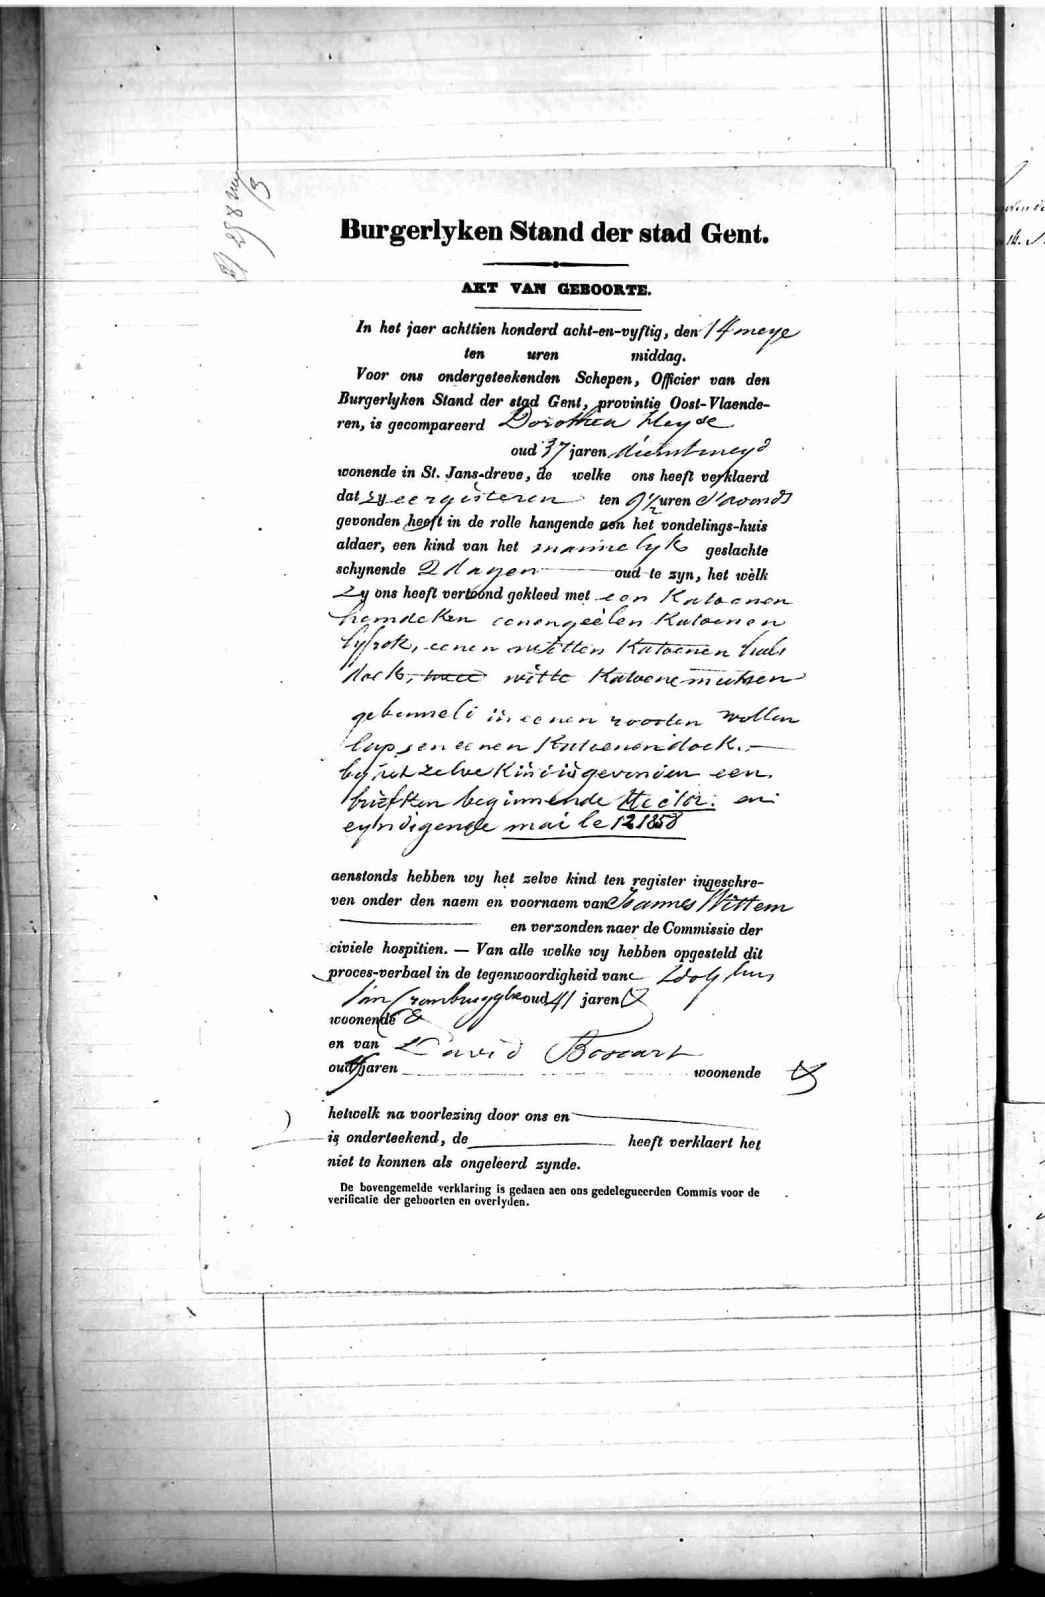 Burgerlyken Stand der stad Gent.
AKT VAN GEBOORTE.
In het jaer achttien honderd acht-en-vyftig, den 14 meye
ten uren middag.
Voor ons ondergeteekenden Schepen, Officier van den
Burgerlyken Stand der stad Gent, provintie Oost-Vlaende-
ren, is gecompareerd Dorothea Heyse
oud 37 jaren, dienstmeyd
wonende in St. Jans-dreve, de welke ons heeft verklaerd
dat zy eergisteren ten 9½ uren s'avonds
gevonden heeft in de rolle hangende aen het vondelings-huis
aldaer, een kind van het mannelyk geslachte
schynende 2 dagen oud te zyn, het welk
zy ons heeft vertoond gekleed met een Katoenen
hemdeken eenen geelen Katoenen
lyfrok, eenen witten Katoenen hals
doek, twee witte Katoene mutsen
gebunseld in eenen rooden wollen
lap, en eenen Katoenen doek.
by het zelve Kind is gevonden een
briefken beginnende Hector: en
eyndigende mai le 12 1858
aenstonds hebben wy het zelve kind ten register ingeschre-
ven onder den naem en voornaem van Joannes Wittem
en verzonden naer de Commissie der
civiele hospitien. — Van alle welke wy hebben opgesteld dit
proces-verbael in de tegenwoordigheid van Adolphus
Van Crombrugghe oud 41 jaren
woonende
en van David Boscart
oud jaren woonende
hetwelk na voorlezing door ons en
is onderteekend, de heeft verklaert het
niet te konnen als ongeleerd zynde.
De bovengemelde verklaring is gedaen aen ons gedelegueerden Commis voor de
verificatie der geboorten en overlyden.